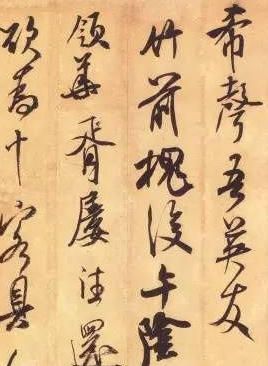 希聲吾英友
竹前槐後午陰
領華胥屢往還
欲為十客具